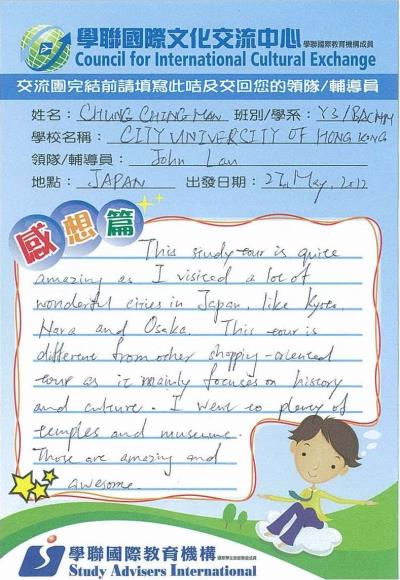 學聯國際文化交流中心 學聯國際教育機構成員
Council for International Cultural Exchange
交流團完結前請填寫此咭及交回您的領隊/輔導員
姓名：CHUNG CHING MAN 班別/學系：Y3/BACHM
學校名稱：CITY UNIVERSITY OF HONG KONG
領隊/輔導員：John Lau
地點：JAPAN 出發日期：27, May, 2012
感想篇
This study tour is quite
amazing as I visited a lot of
wonderful cities in Japan, like Kyoto,
Nara and Osaka. This tour is
different from other shopping-oriented
tour as it mainly focuses on history
and culture. I went to plenty of
temples and museums.
Those are amazing and
awesome.
學聯國際教育機構
Study Advisers International